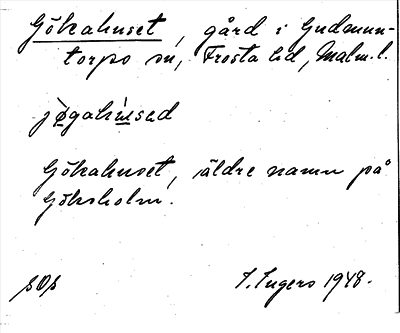 Gökahuset, gård i Gudmun-
torps sn, Frosta hd, Malm. l.
jø̀gahú̱sed
Gökahuset, äldre namn på
Göksholm.
sOs
I. Ingers 1948.